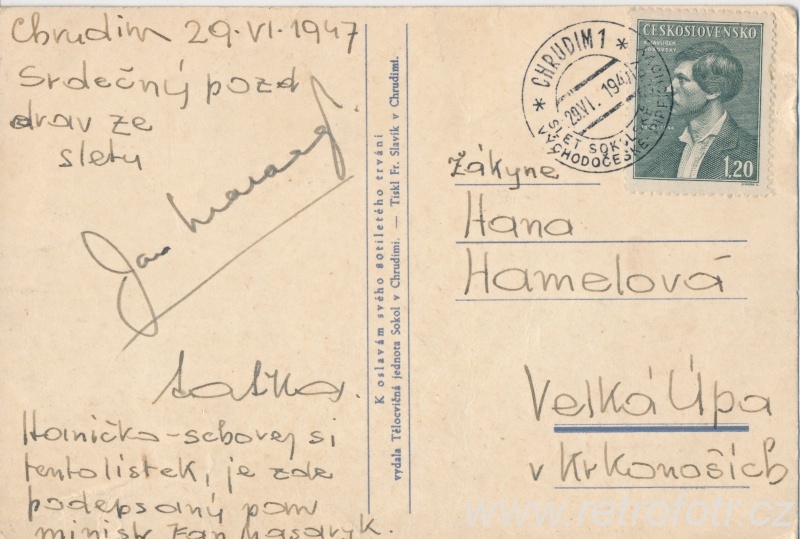 Chrudim 29.VI.1947
Srdečný pozd
drav ze
sletu
Jan Masaryk
taťka.
Haničko-schovej si
tentolístek, je zde
podepsaný pan
ministr Jan Masaryk.
K oslavám svého 80tiletého trvání
vydala Tělocvičná jednota Sokol v Chrudimi. — Tiskl Fr. Slavík v Chrudimi.
* CHRUDIM 1 *
29.VI. 1947
SLET SOKOLSKÉ
VÝCHODOČESKÉ
ČESKOSLOVENSKO
1,20
Žákyne
Hana
Hamelová
Velká Úpa
v Krkonoších
www.retrofotr.cz